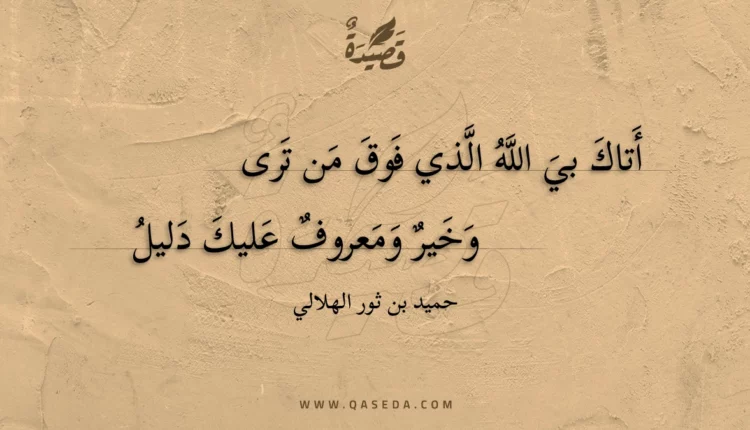 قَصِيدَةٌ
أَتاكَ بيَ اللَّهُ الَّذي فَوقَ مَن تَرى
وَخَيرٌ وَمَعروفٌ عَليكَ دَليلُ
حميد بن ثور الهلالي
WWW.QASEDA.COM